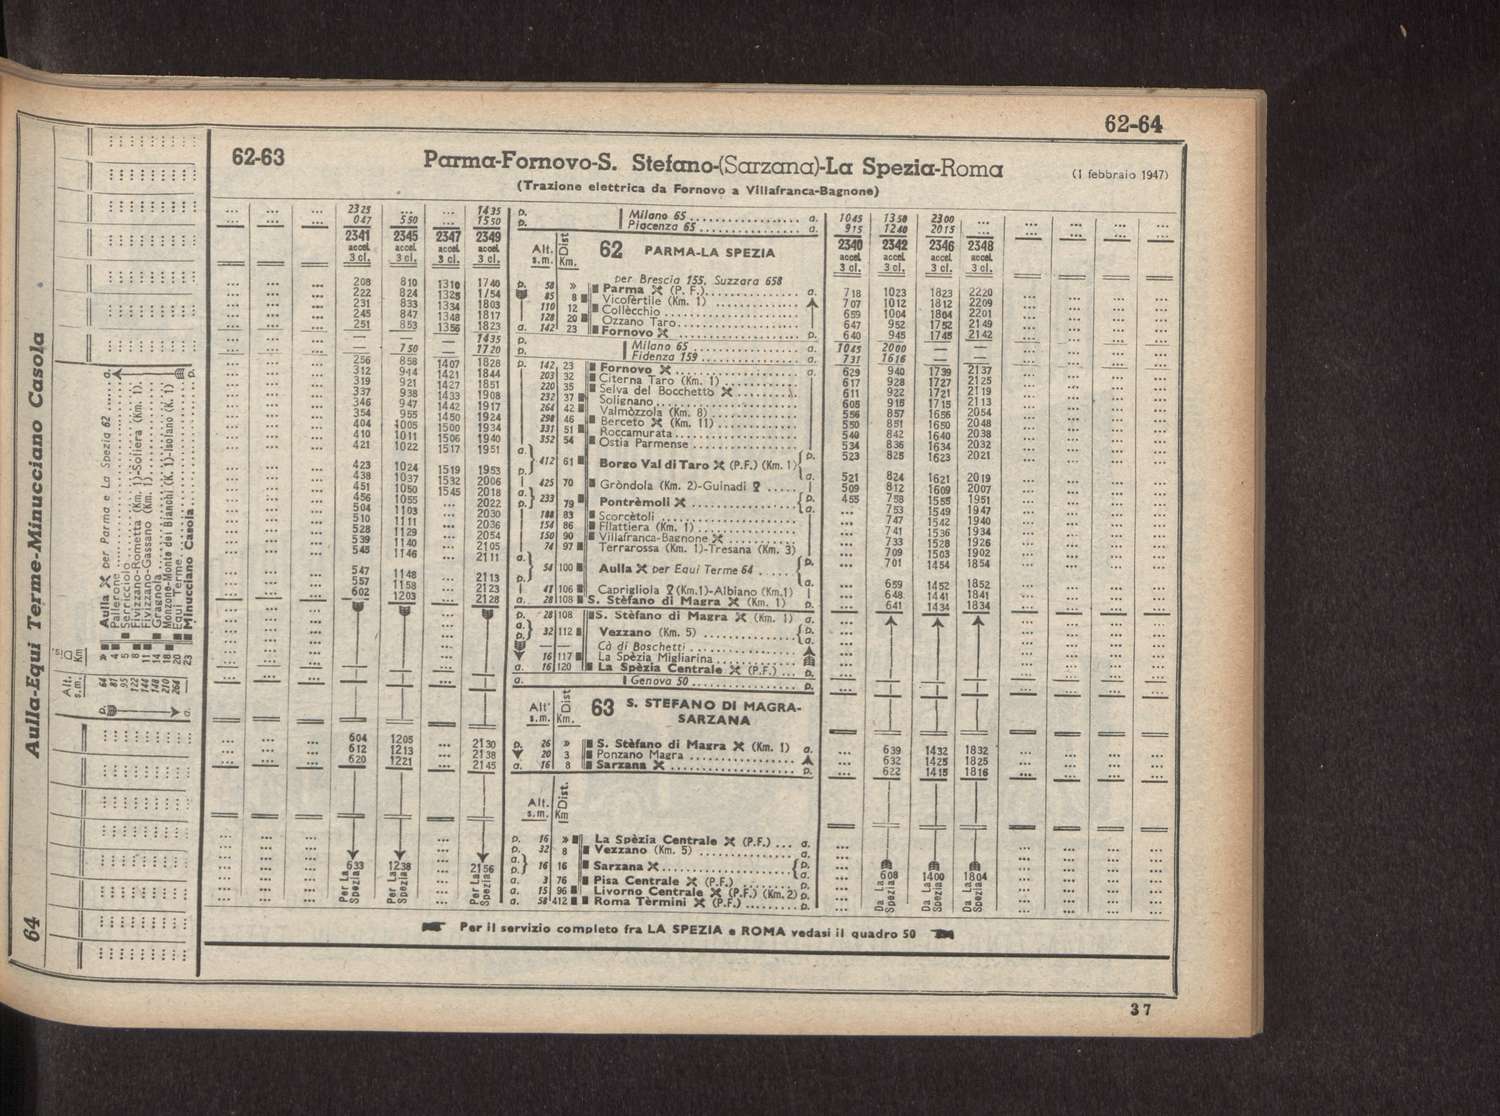 62-64
62-63 Parma-Fornovo-S. Stefano-(Sarzana)-La Spezia-Roma (1 febbraio 1947)
(Trazione elettrica da Fornovo a Villafranca-Bagnone)
... ... ... 2325 ... ... 1435 p. Milano 65 ... a. 1045 1350 2300 ...
... ... ... 047 550 ... 1550 p. Piacenza 65 ... a. 915 1240 2015 ...
2341 2345 2347 2349 Alt. s.m. Dist Km. 62 PARMA-LA SPEZIA 2340 2342 2346 2348
accel. accel. accel. accel. accel. accel. accel. accel.
3 cl. 3 cl. 3 cl. 3 cl. 3 cl. 3 cl. 3 cl. 3 cl.
per Brescia 155. Suzzara 658
208 810 1310 1740 p. 58 » Parma (P. F.) ... a. 718 1023 1823 2220
222 824 1325 1754 85 8 Vicofèrtile (Km. 1) ... 707 1012 1812 2209
231 833 1334 1803 110 12 Collècchio ... 659 1004 1804 2201
245 847 1348 1817 128 20 Ozzano Taro ... 647 952 1752 2149
251 853 1356 1823 a. 142 23 Fornovo ... p. 640 945 1745 2142
— — — 1435 p. Milano 65 ... a. 1045 2000 — —
— 750 — 1720 p. Fidenza 159 ... a. 731 1616 — —
256 858 1407 1828 p. 142 23 Fornovo ... a. 629 940 1739 2137
312 914 1421 1844 203 32 Citerna Taro (Km. 1) ... 617 928 1727 2125
319 921 1427 1851 220 35 Selva del Bocchetto ... 611 922 1721 2119
337 938 1433 1908 232 37 Solignano ... 605 915 1715 2113
346 947 1442 1917 264 42 Valmòzzola (Km. 8) ... 556 857 1656 2054
354 955 1450 1924 298 46 Berceto (Km. 11) ... 550 851 1650 2048
404 1005 1500 1934 331 51 Roccamurata ... 540 842 1640 2038
410 1011 1506 1940 352 54 Ostia Parmense ... 534 836 1634 2032
421 1022 1517 1951 a. 412 61 Borgo Val di Taro (P.F.) (Km. 1) p. 523 825 1623 2021
423 1024 1519 1953 p. a. 521 824 1621 2019
438 1037 1532 2006 425 70 Gròndola (Km. 2)-Guinadi ... 509 812 1609 2007
451 1050 1545 2018 a. 233 79 Pontrèmoli p. 455 758 1555 1951
456 1055 ... 2022 p. a. ... 753 1549 1947
504 1103 ... 2030 188 83 Scorcètoli ... 747 1542 1940
510 1111 ... 2036 154 86 Filattiera (Km. 1) ... 741 1536 1934
528 1129 ... 2054 150 90 Villafranca-Bagnone ... 733 1528 1926
539 1140 ... 2105 74 97 Terrarossa (Km. 1)-Tresana (Km. 3) ... 709 1503 1902
545 1146 ... 2111 a. 54 100 Aulla per Equi Terme 64 ... p. ... 701 1454 1854
547 1148 ... 2113 p. a. ... 659 1452 1852
557 1158 ... 2123 41 106 Caprigliola (Km.1)-Albiano (Km.1) ... 648 1441 1841
602 1203 ... 2128 a. 28 108 S. Stèfano di Magra (Km. 1) p. ... 641 1434 1834
p. 28 108 S. Stèfano di Magra (Km. 1) a.
a. p. 32 112 Vezzano (Km. 5) ... p. a.
— — Cà di Boschetti ...
16 117 La Spèzia Migliarina ...
a. 16 120 La Spèzia Centrale (P.F.) ... p.
a. Genova 50 ... p.
Alt. s.m. Dist Km. 63 S. STEFANO DI MAGRA-
SARZANA
604 1205 ... 2130 p. 26 » S. Stèfano di Magra (Km. 1) a. ... 639 1432 1832
612 1213 ... 2138 20 3 Ponzano Magra ... 632 1425 1825
620 1221 ... 2145 a. 16 8 Sarzana ... p. ... 622 1415 1816
Alt. s.m. Dist. Km
p. 16 » La Spèzia Centrale (P.F.) ... a.
p. 32 8 Vezzano (Km. 5) ... a.
633 1238 2156 a. p. 16 16 Sarzana ... p. a. 608 1400 1804
Per La Spezia Per La Spezia Per La Spezia a. 3 76 Pisa Centrale (P.F.) ... p. Da La Spezia Da La Spezia Da La Spezia
a. 15 96 Livorno Centrale (P.F.) (Km. 2) p.
a. 58 412 Roma Tèrmini (P.F.) ... p.
Per il servizio completo fra LA SPEZIA e ROMA vedasi il quadro 50
37
64 Aulla-Equi Terme-Minucciano Casola
Alt. s.m. Dist. Km
p. 64 » Aulla per Parma e La Spezia 62 ... a.
81 4 Pallerone ...
95 5 Serricciolo ...
122 8 Fivizzano-Rometta (Km. 1)-Soliera (Km. 1).
144 11 Fivizzano-Gassano (Km. 1) ...
148 14 Gragnola ...
210 18 Monzone-Monte dei Bianchi (K. 1)-Isolano (K. 1)
264 20 Equi Terme ...
a. 23 Minucciano Casola ... p.